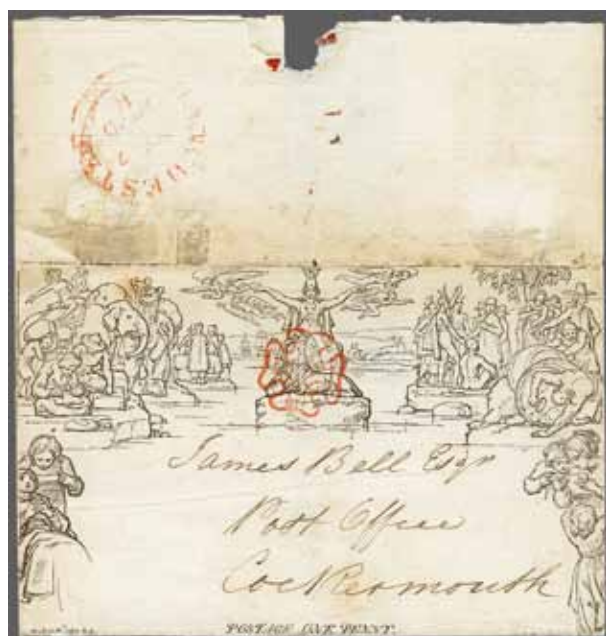 James Bell Esqr
Post Office
Cockermouth
POSTAGE ONE PENNY.